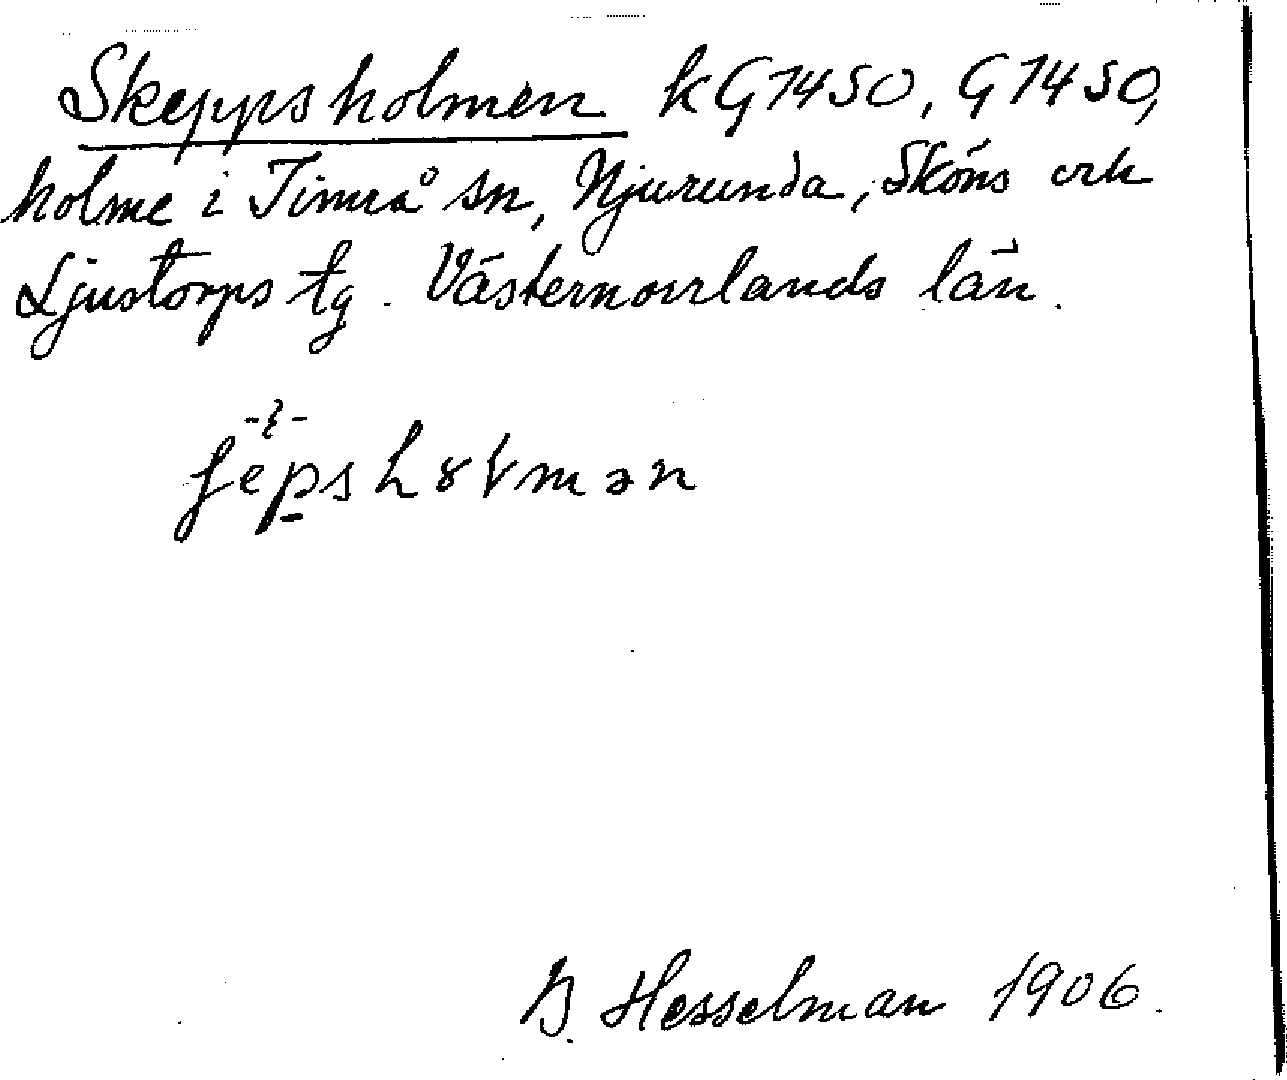 Skeppsholmen kG1450, G1450,
holme i Timrå sn, Njurunda, Sköns och
Ljustorps tg. Västernorrlands län.
B. Hesselman 1906.